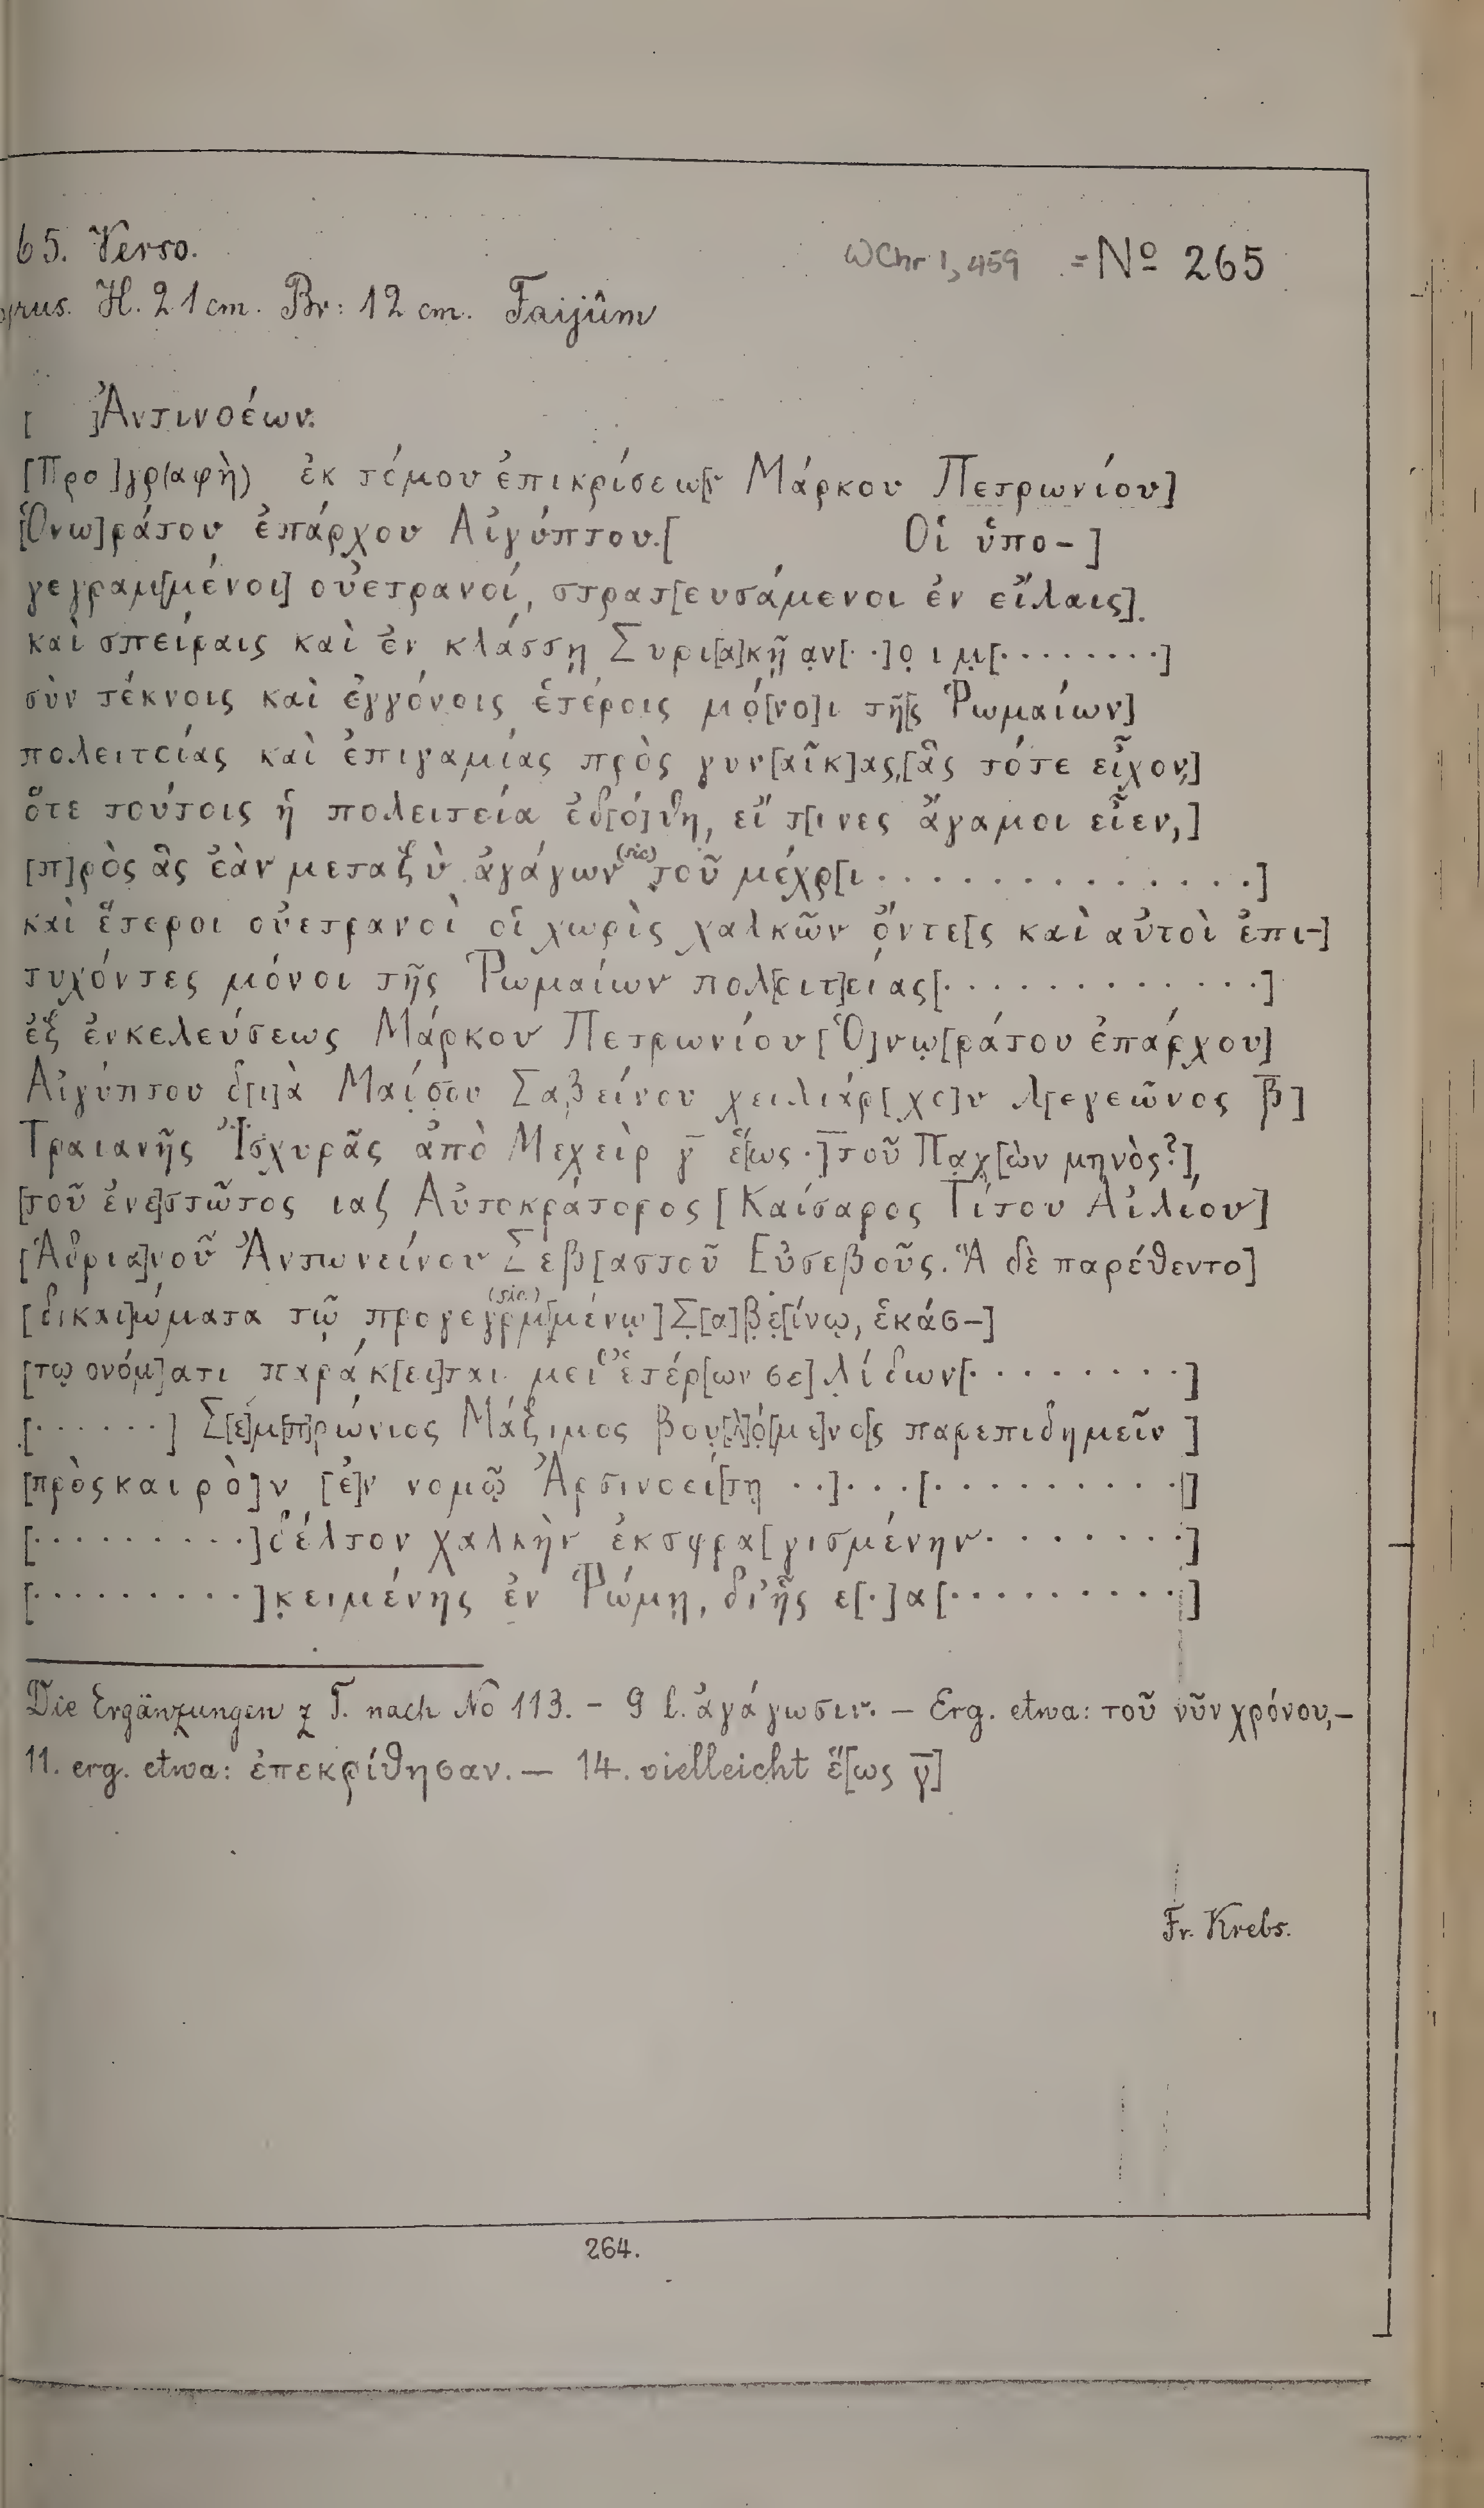 65. Verso.
WChr 1, 459 = No 265
H. 21 cm. Br: 12 cm. Faijûm
[ ]Ἀντινοέων.
[Προ]γρ(αφὴ) ἐκ τόμου ἐπικρίσεω[ν Μάρκου Πετρωνίου]
[Ὁνω]ράτου ἐπάρχου Αἰγύπτου.[ Οἱ ὑπο-]
γεγραμ[μένοι] οὐετρανοί, στρατ[ευσάμενοι ἐν εἴλαις]
καὶ σπείραις καὶ ἐν κλάσσῃ Συρι[α]κῇ ạν[··]ọ ι μ̣[········]
σὺν τέκνοις καὶ ἐγγόνοις ἑτέροις μό̣[νο]ι τῆ[ς Ῥωμαίων]
πολειτείας καὶ ἐπιγαμίας πρὸς γυν[αῖκ]ας,[ἃς τότε εἶχον,]
ὅτε τούτοις ἡ πολειτεία ἐδ[ό]θη, εἴ τ[ινες ἄγαμοι εἶεν,]
[π]ρὸς ἃς ἐὰν μεταξὺ ἀγάγων (sic) τοῦ μέχρ[ι··············]
καὶ ἕτεροι οὐετρανοὶ οἱ χωρὶς χαλκῶν ὄντε[ς καὶ αὐτοὶ ἐπι-]
τυχόντες μόνοι τῆς Ῥωμαίων πολ[ειτ]είας[·············]
ἐξ ἐνκελεύσεως Μάρκου Πετρωνίου [Ὁ]νω̣[ράτου ἐπάρχου]
Αἰγύπτου δ[ι]ὰ Μαί̣σ̣ου Σαβείνου χειλιάρ[χο]υ λ[εγεῶνος β̅]
Τραιανῆς Ἰσχυρᾶς ἀπὸ Μεχεὶρ γ̅ ἕ[ως ·̅] τοῦ Πα̣χ̣[ὼν μηνὸς?]
[τοῦ ἐνε]στῶτος ιαζ Αὐτοκράτορος [Καίσαρος Τίτου Αἰλίου]
[Ἁδρια]νοῦ Ἀντωνείνου Σεβ[αστοῦ Εὐσεβοῦς. Ἃ δὲ παρέθεντο]
[δικαι]ώματα τῷ προγεγρμ[μένῳ] (sic) Σ̣[α]β̣ε̣[ίνῳ, ἑκάσ-]
[τῳ ονόμ]ατι παράκ[ει]ται. μεθ’ ἑτέρ[ων σε]λίδων[········]
[······] Σ[ε]μ[π]ρώνιος Μάξιμος βου[λ]ό̣[με]νο[ς παρεπιδημεῖν ]
[πρὸς καιρὸ]ν [ἐ]ν νομῷ Ἀρσινοεί[τῃ ··]···[·········]
[·········]δέλτον χαλκὴν ἐκσφρα[γισμένην·······]
[·········]κ̣ειμένης ἐν Ῥώμῃ, δι’ ἧς ε[·]α[·········]
Die Ergänzungen z. T. nach No 113. – 9 l. ἀγάγωσιν. – Erg. etwa: τοῦ νῦν χρόνου,–
11. erg. etwa: ἐπεκρίθησαν. – 14. vielleicht ἕ[ως γ̅]
Fr. Krebs.
264.